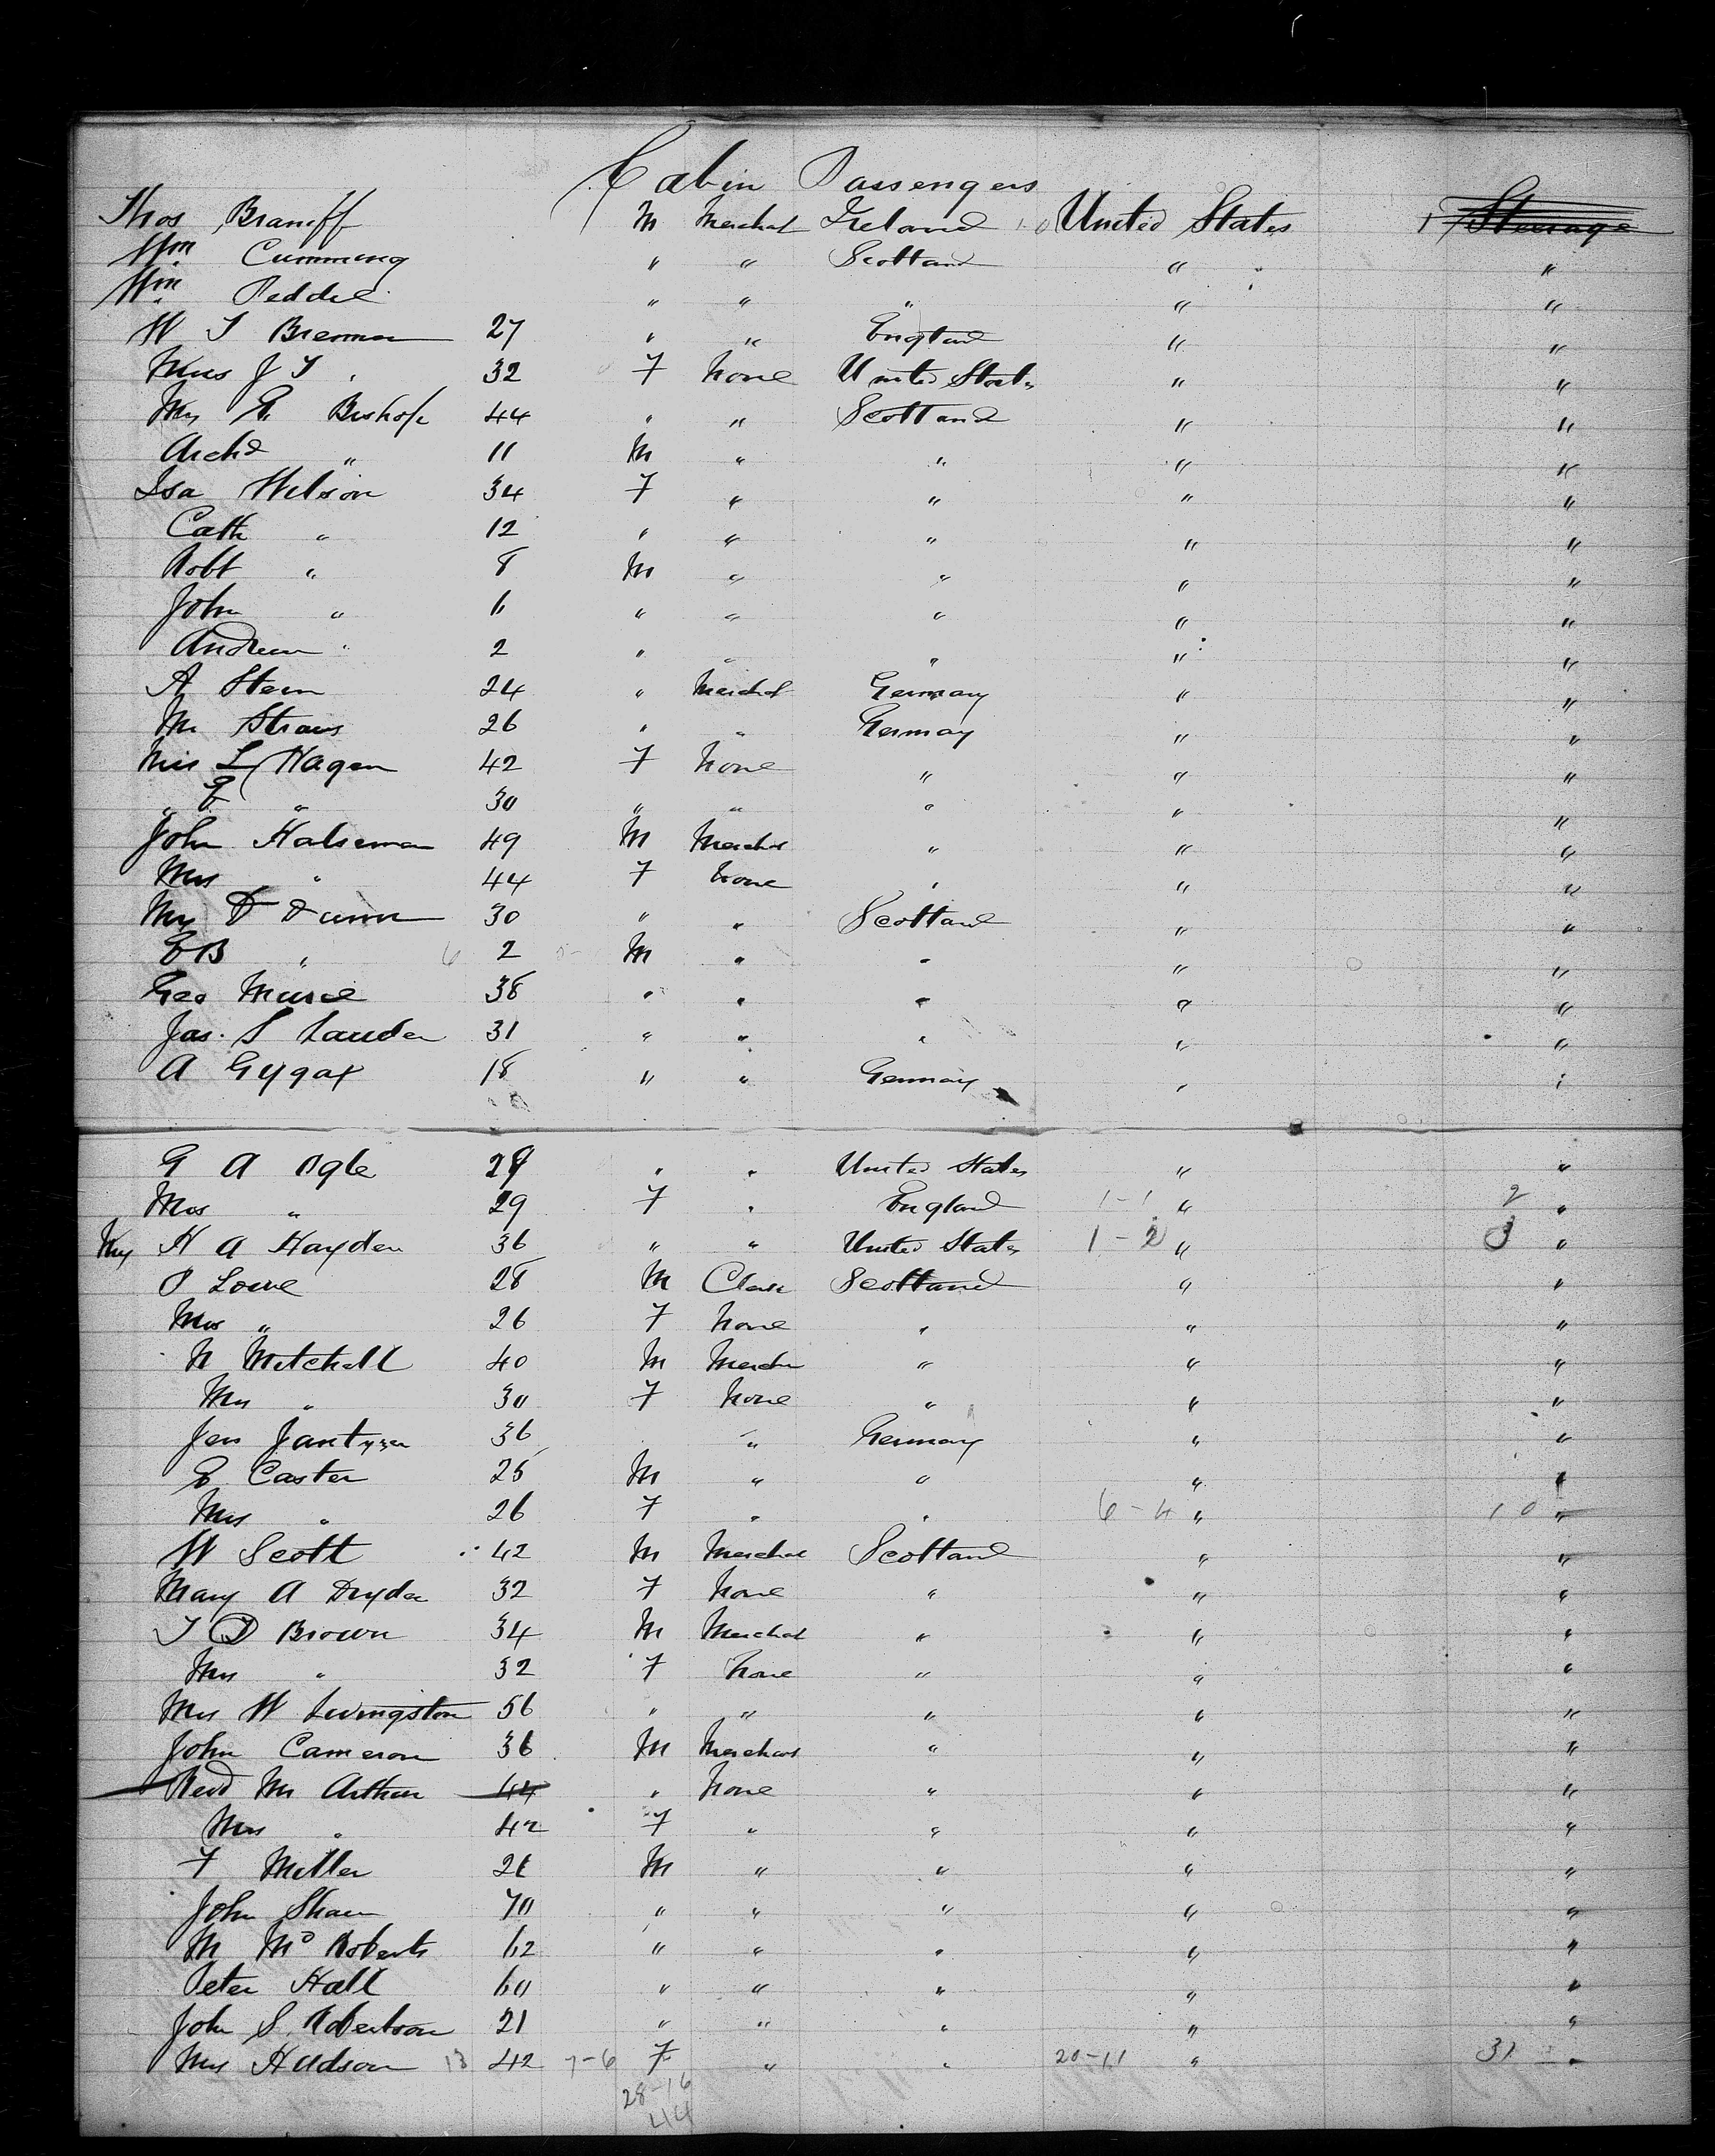 Cabin Passengers
Thos Braniff M Merchat Ireland United States Steerage
Wm Cumming " " Scotland " "
Wm Peddie " " " " "
W T Brennan 27 " " England " "
Mrs J T " 32 F None United States " "
Mrs G. Bishop 44 " " Scotland " "
Archd " 11 M " " " "
Isa Wilson 34 F " " " "
Cath " 12 " " " " "
Robt " 8 M " " " "
John " 6 " " " " "
Andrew " 2 " " " " "
A Stern 24 " Merchat Germany " "
M Straus 26 " " Germany " "
Miss L Hagen 42 F None " " "
" " 30 " " " " "
John Halseman 49 M Merchat " " "
Mrs " 44 F None " " "
Mrs D Dunn 30 " " Scotland " "
E B " 6 2 M " " " "
Geo Murie 38 " " " " "
Jas. S Lauder 31 " " " " "
A Gygax 18 " " Germany " "
G A Ogle 29 " " United States " "
Mrs " 29 F " England 1-1 " 2 "
Mrs H A Hayden 36 " " United States 1-2 " 3 "
P Lowe 28 M Clark Scotland " "
Mrs " 26 F None " " "
N Mitchell 40 M Merchat " " "
Mrs " 30 F None " " "
Jen Jantzzen 36 " Germany " "
E Caster 25 M " " " "
Mrs " 26 F " " 6-4 " 10 "
W Scott 42 M Merchat Scotland " "
Mary A Dryden 32 F None " " "
T D Brown 34 M Merchat " " "
Mrs " 32 F None " " "
Mrs W Livingston 56 " " " " "
John Cameron 36 M Merchant " " "
Revd Mr Arthur 44 " None " " "
Mrs " 42 F " " " "
F Miller 26 M " " " "
John Shaw 70 " " " " "
M Mc Roberts 62 " " " " "
Peter Hall 60 " " " " "
John S. Robertson 21 " " " " "
Mrs Hudson 13 42 7-6 F " " 20-11 " 31 "
28-16
44